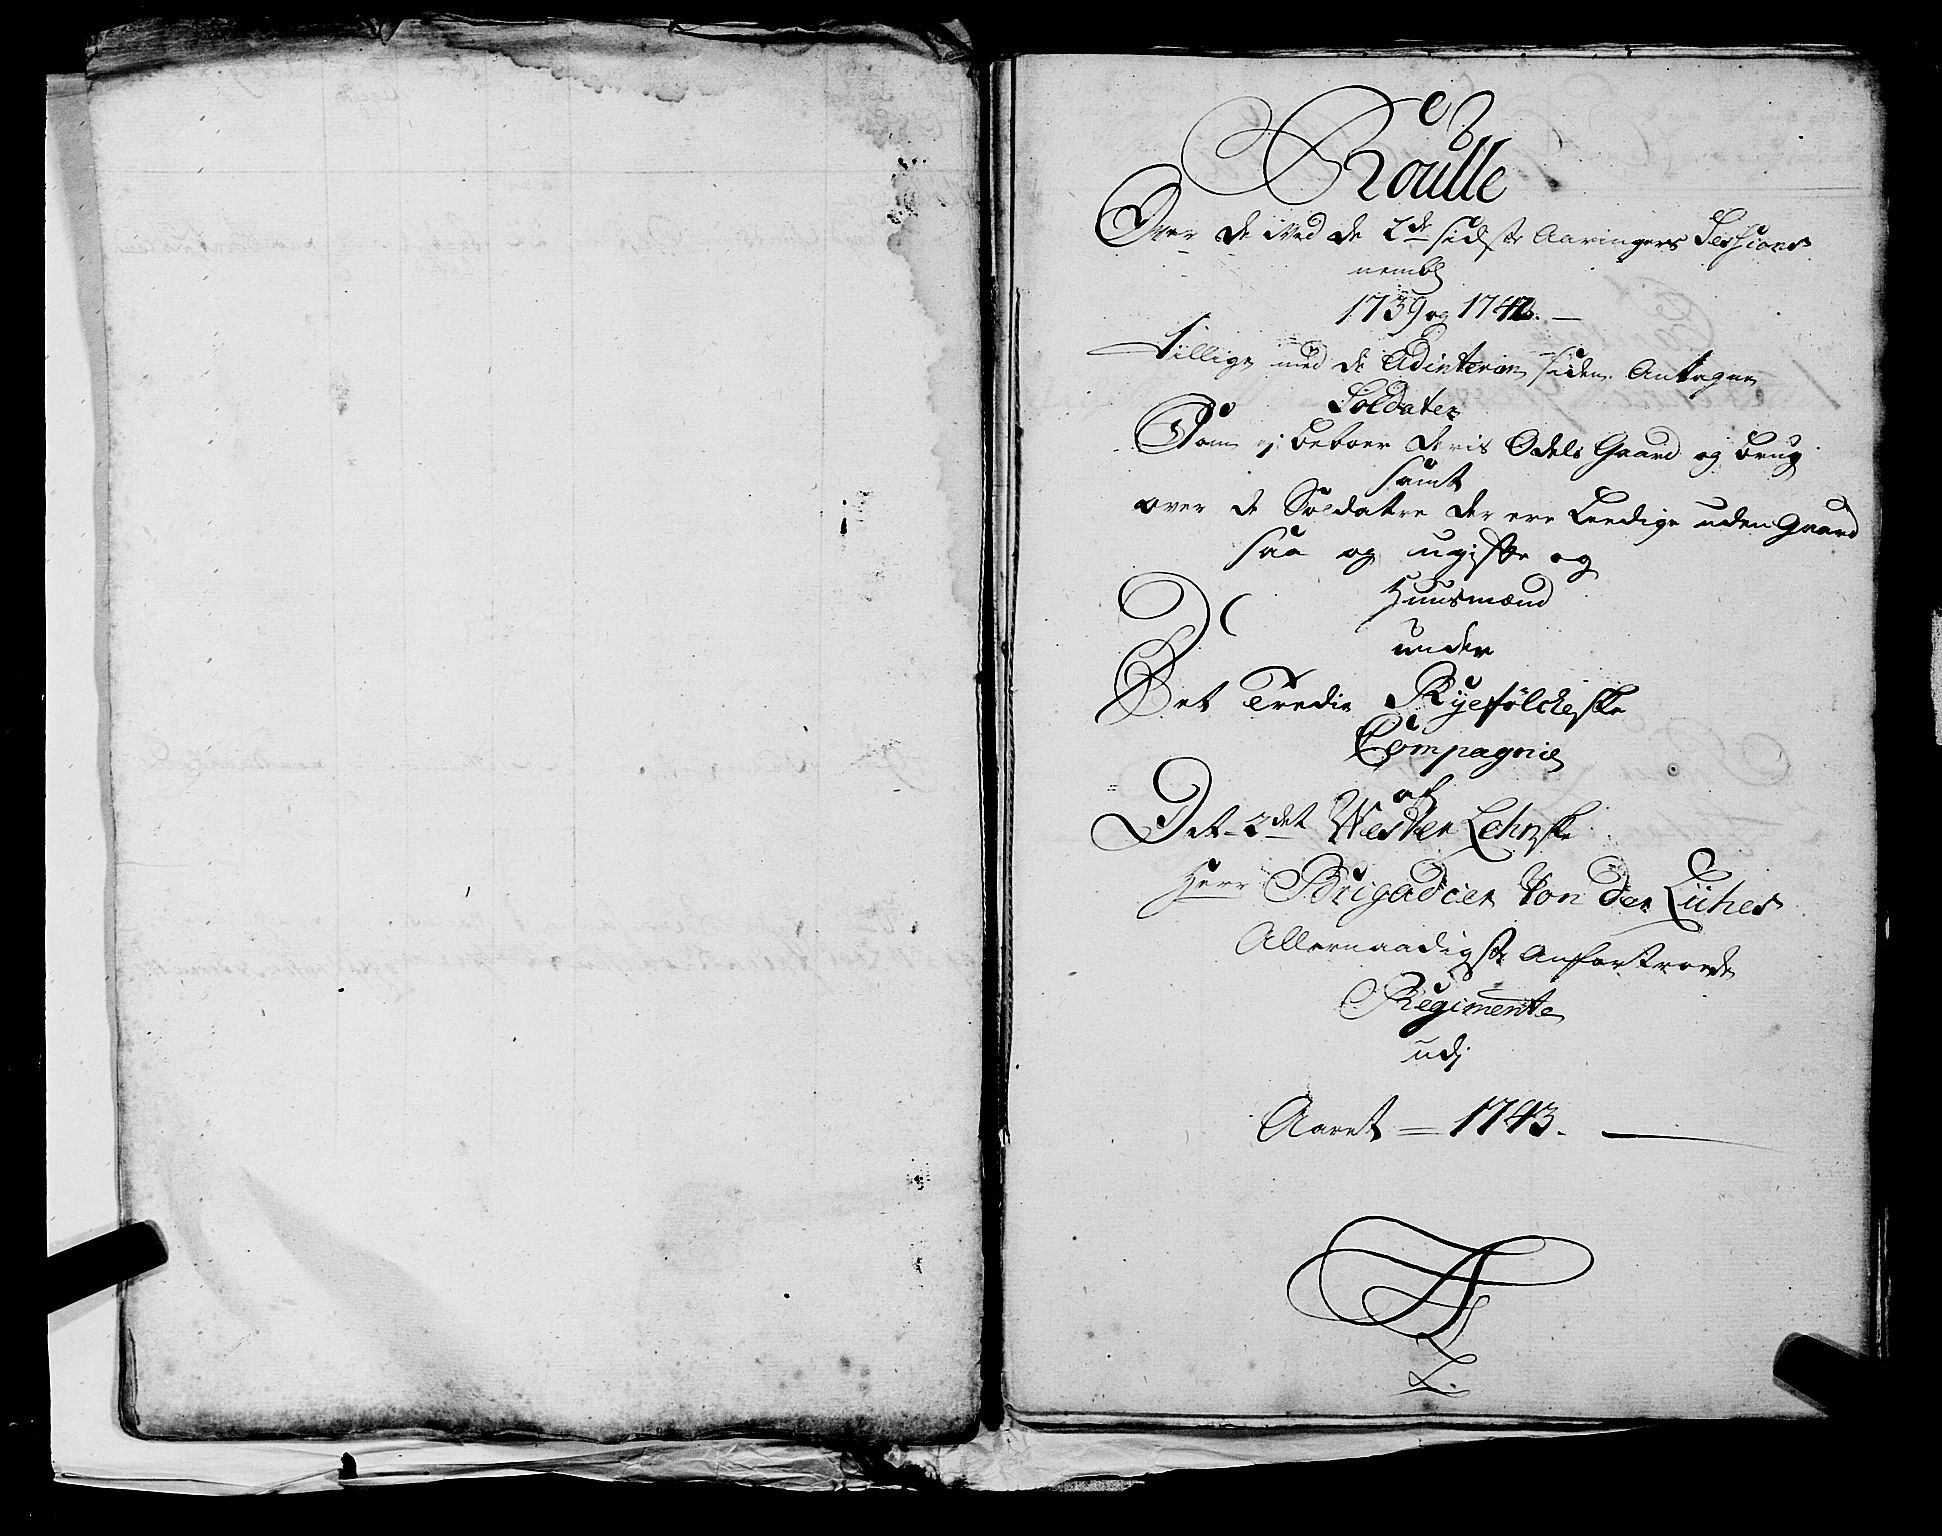 Roulle
Over de ved de 2de sidste Aaringers Sessions
nembl
1739 og 1742.
Tillige med de Adinterim siden Antagne
Soldater
Som ej beboer deris Odels Gaard og brug
samt
over de Soldatre der ere Leedige uden Gaard
saa og ugifte og
Huusmænd
under
Det Tredie Ryefölcheske
Compagnie
af
Det 2det Wester Lehnske
Herr Brigadeer Von der Lühes
Allernaadigste Anfortroede
Regimente
udj
Aaret = 1743.